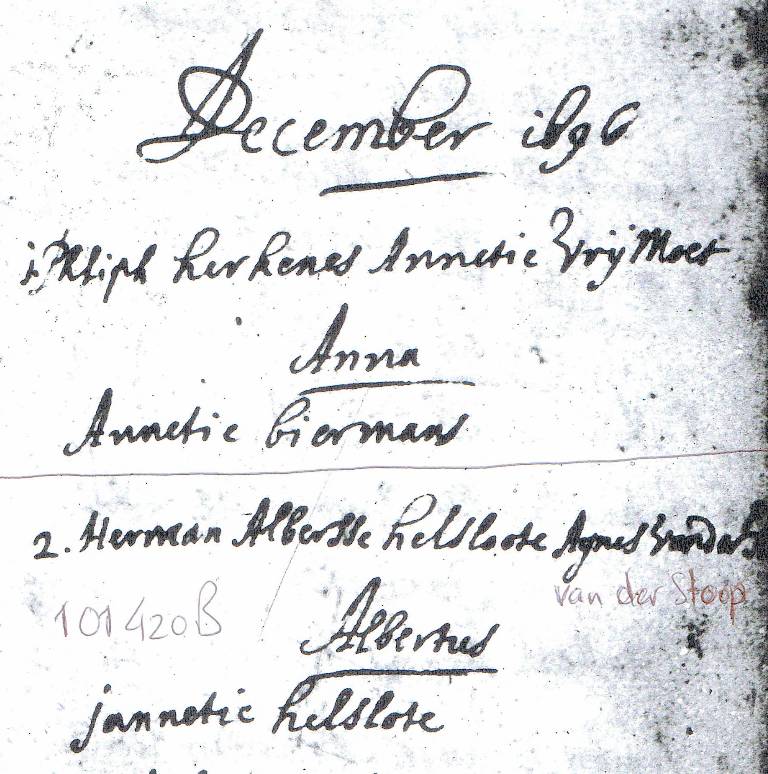 December 1696
1. Phliph herkenes Annetie Vrij Moet
Anna
Annetie biermans
2. Herman Albersse helsloote Agnes
van der Stoop
101420B
Albertus
jannetie helslote